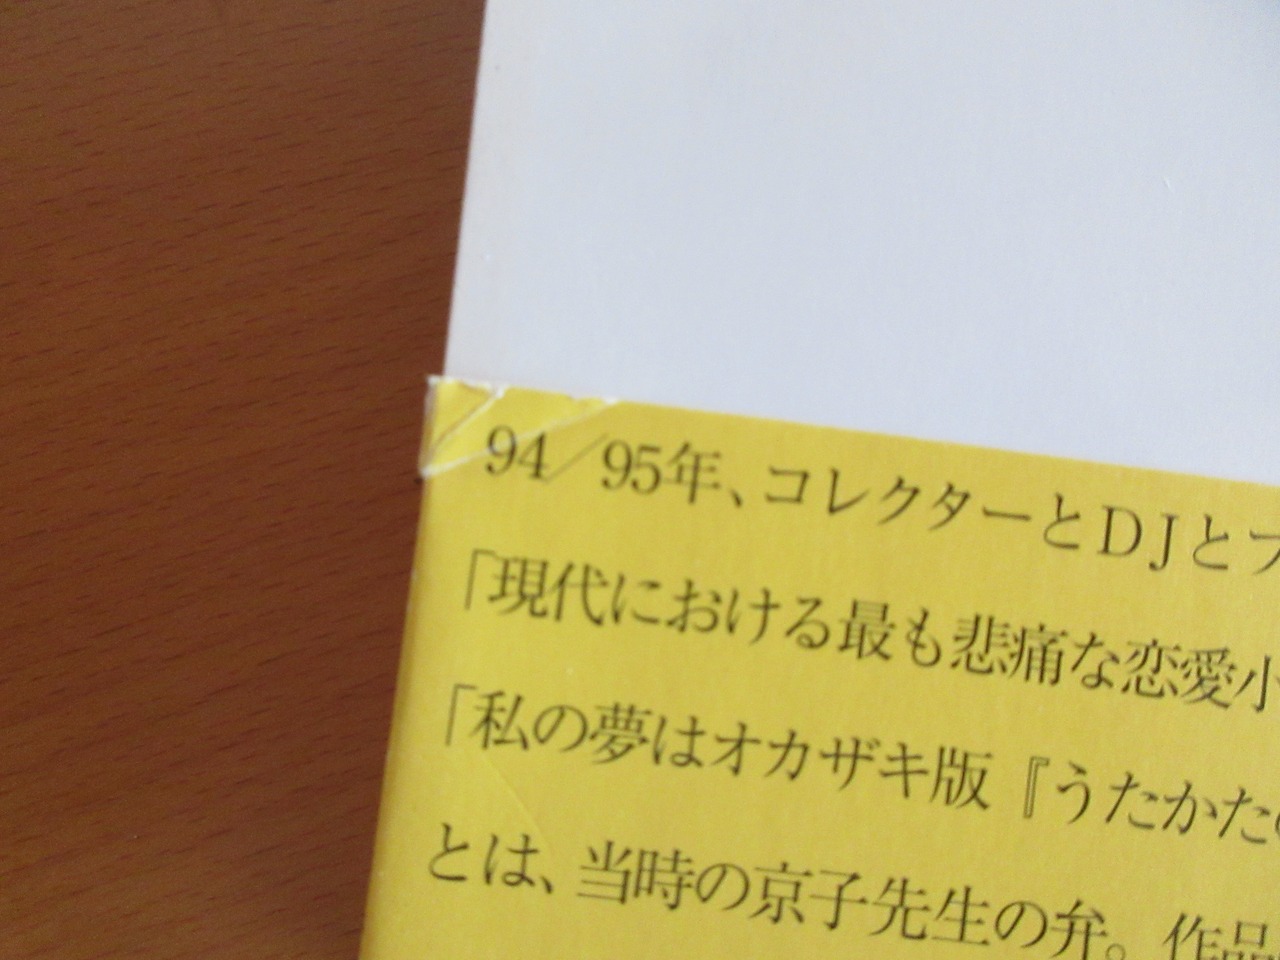 94／95年、コレクターとDJとフ
「現代における最も悲痛な恋愛小
「私の夢はオカザキ版『うたかた
とは、当時の京子先生の弁。作品